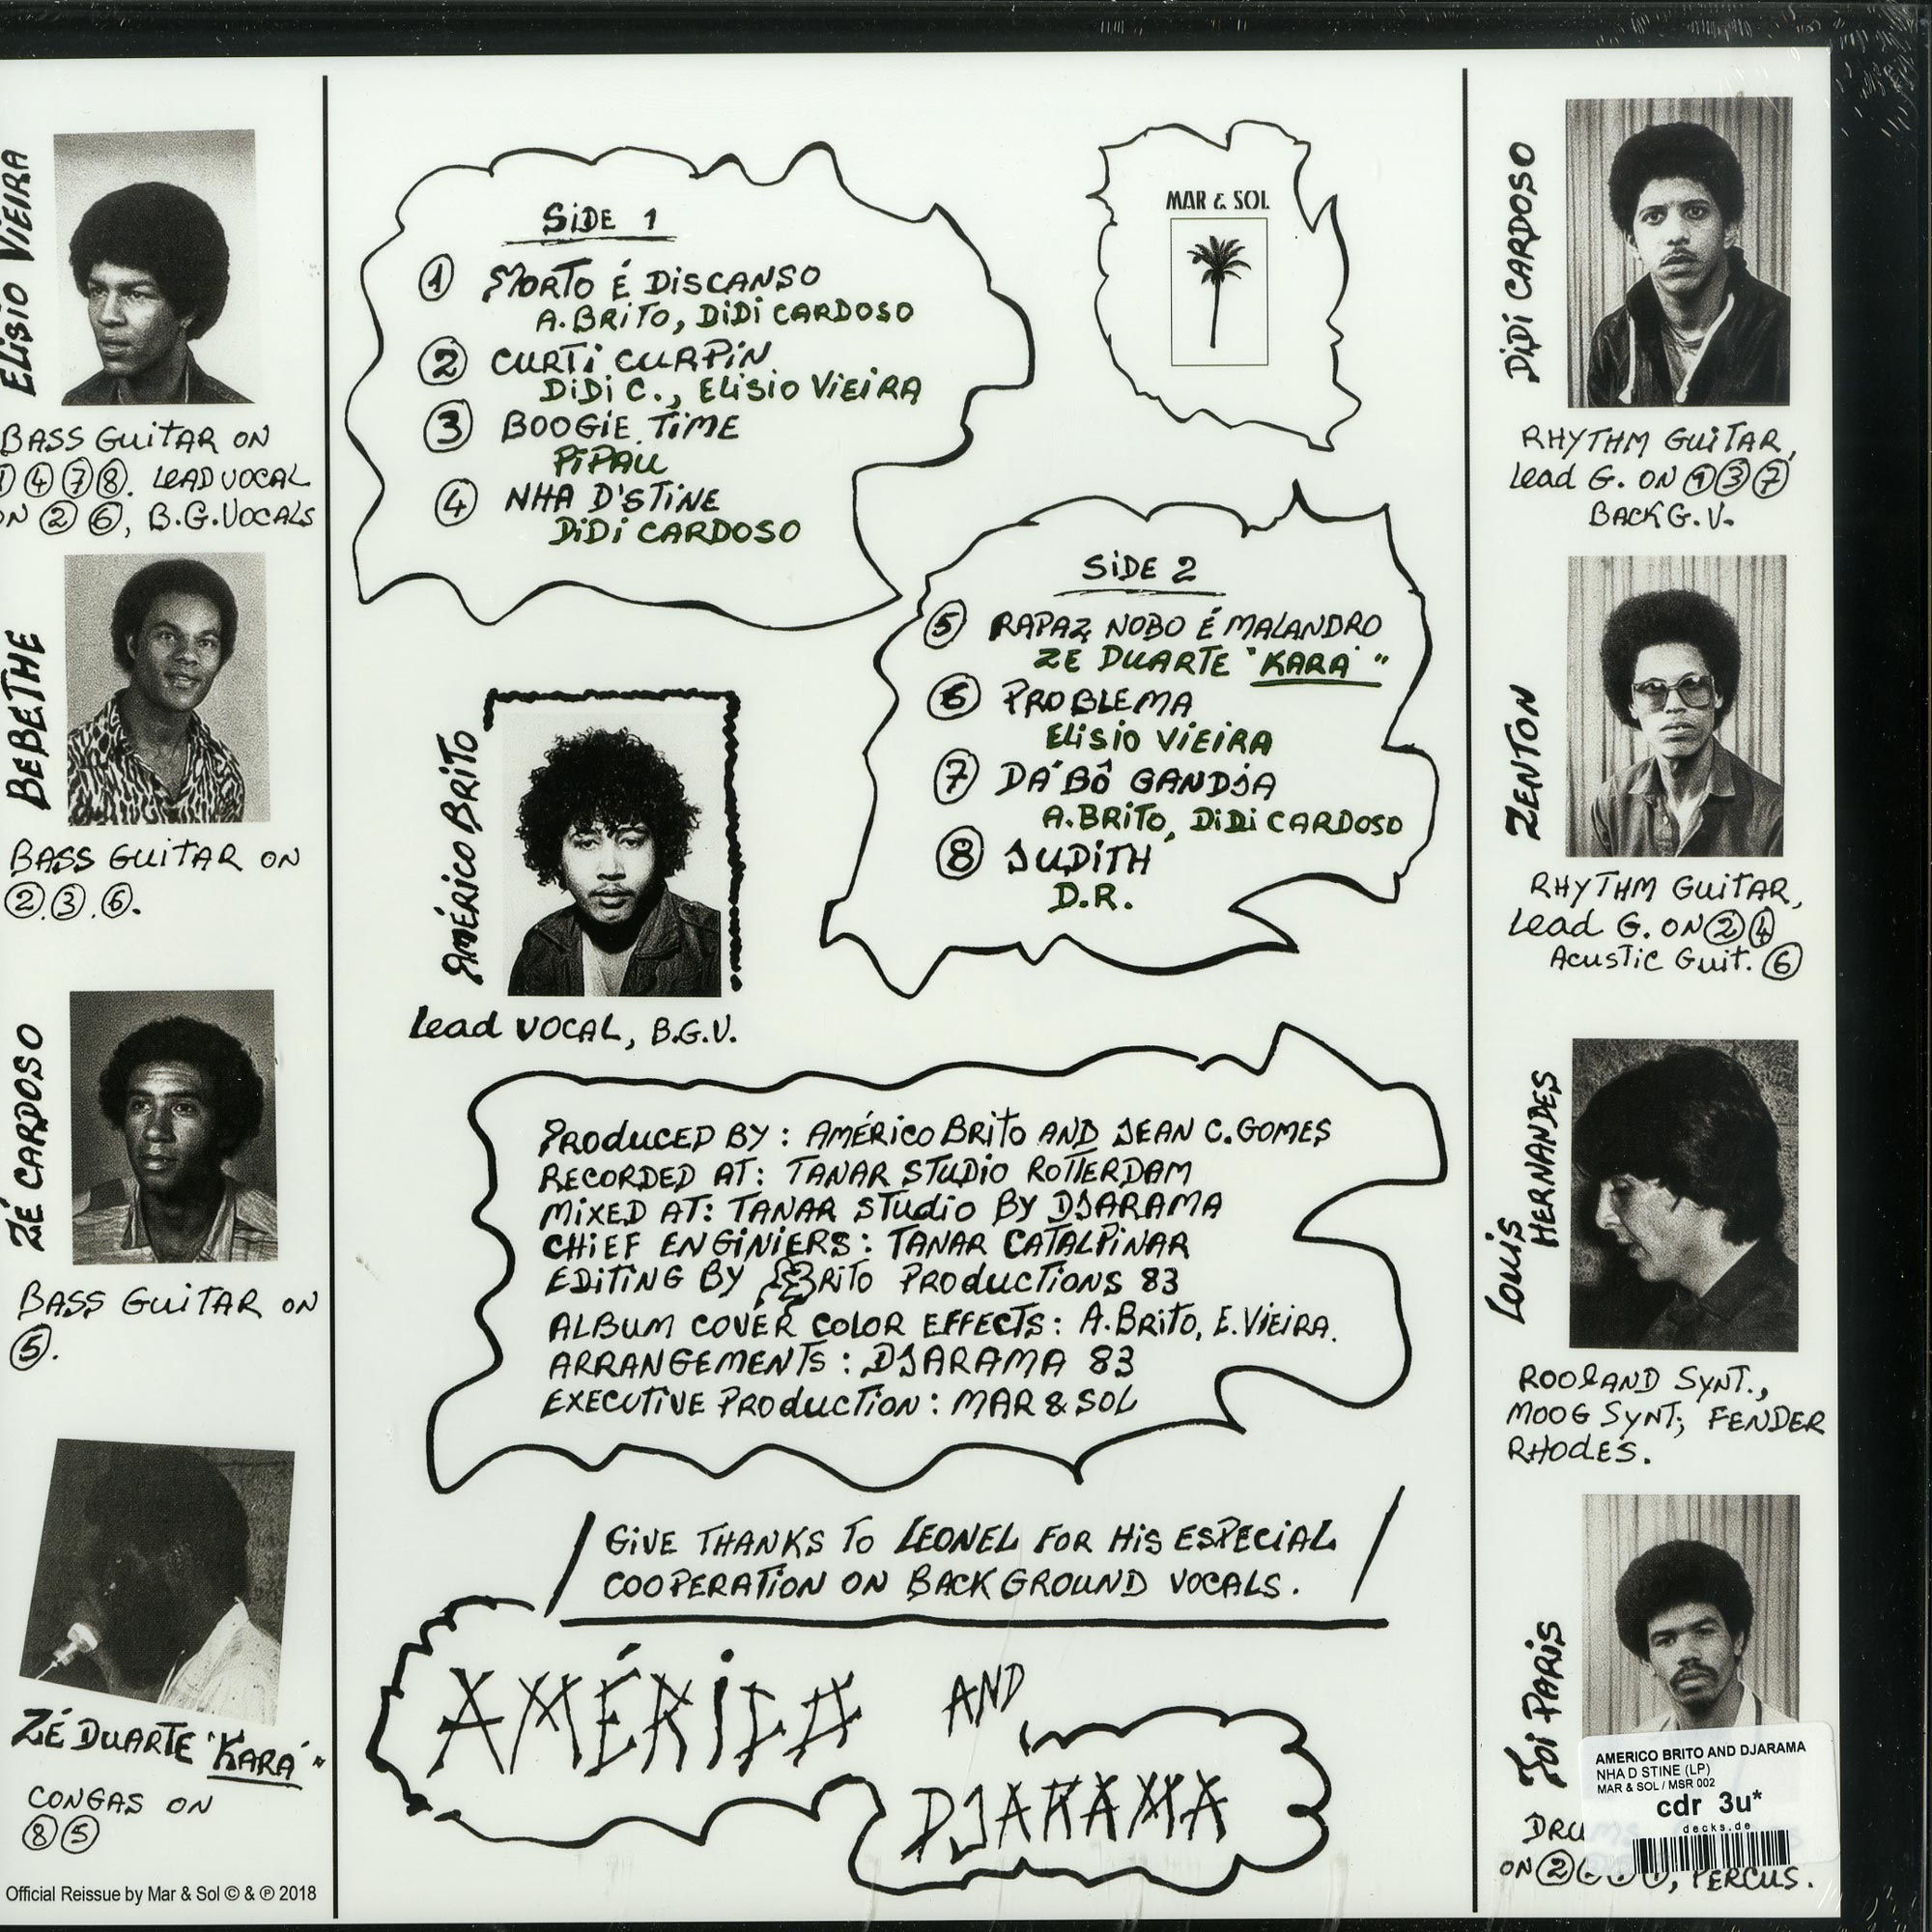 ELISIO VIEIRA
BASS GUITAR ON
① ④ ⑦ ⑧. LEAD VOCAL
ON ② ⑥, B.G. VOCALS
BEBETHE
BASS GUITAR ON
②.③.⑥.
ZÉ CARDOSO
BASS GUITAR ON
⑤.
ZÉ DUARTE "KARÁ"
CONGAS ON
⑧⑤
Official Reissue by Mar & Sol © & ℗ 2018
SIDE 1
① MORTO É DISCANSO
A. BRITO, DIDI CARDOSO
② CURTI CURPIN
DIDI C., ELISIO VIEIRA
③ BOOGIE TIME
PIPAU
④ NHA D'STINE
DIDI CARDOSO
MAR & SOL
SIDE 2
⑤ RAPAZ NOBO É MALANDRO
ZE DUARTE "KARA"
⑥ PROBLEMA
ELISIO VIEIRA
⑦ DA'BÔ GANDJA
A. BRITO, DIDI CARDOSO
⑧ JUDITH
D.R.
AMÉRICO BRITO
LEAD VOCAL, B.G.V.
PRODUCED BY: AMÉRICO BRITO AND JEAN C. GOMES
RECORDED AT: TANAR STUDIO ROTTERDAM
MIXED AT: TANAR STUDIO BY DJARAMA
CHIEF ENGINIERS: TANAR CATALPINAR
EDITING BY BRITO PRODUCTIONS 83
ALBUM COVER COLOR EFFECTS: A. BRITO, E. VIEIRA.
ARRANGEMENTS: DJARAMA 83
EXECUTIVE PRODUCTION: MAR & SOL
GIVE THANKS TO LEONEL FOR HIS ESPECIAL
COOPERATION ON BACK GROUND VOCALS.
AMÉRICO AND
DJARAMA
DIDI CARDOSO
RHYTHM GUITAR,
LEAD G. ON ①③⑦
BACK G. V.
ZENTON
RHYTHM GUITAR,
LEAD G. ON ②④
ACUSTIC GUIT. ⑥
LOUIS
HERNANDES
ROOLAND SYNT.,
MOOG SYNT; FENDER
RHODES.
TOI PARIS
ON ② , PERCUS.
AMERICO BRITO AND DJARAMA
NHA D STINE (LP)
MAR & SOL / MSR 002
cdr 3u*
decks.de